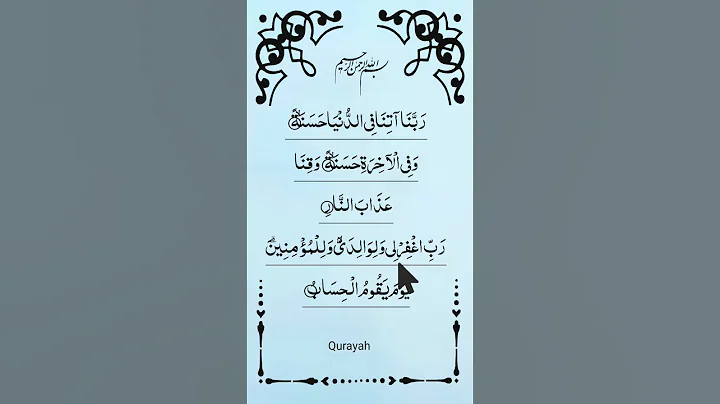 بسم الله الرحمن الرحيم
رَبَّنَا آتِنَا فِي الدُّنْيَا حَسَنَةً
وَفِي الْآخِرَةِ حَسَنَةً وَقِنَا
عَذَابَ النَّارِ
رَبِّ اغْفِرْ لِي وَلِوَالِدَيَّ وَلِلْمُؤْمِنِينَ
يَوْمَ يَقُومُ الْحِسَابُ
Qurayah